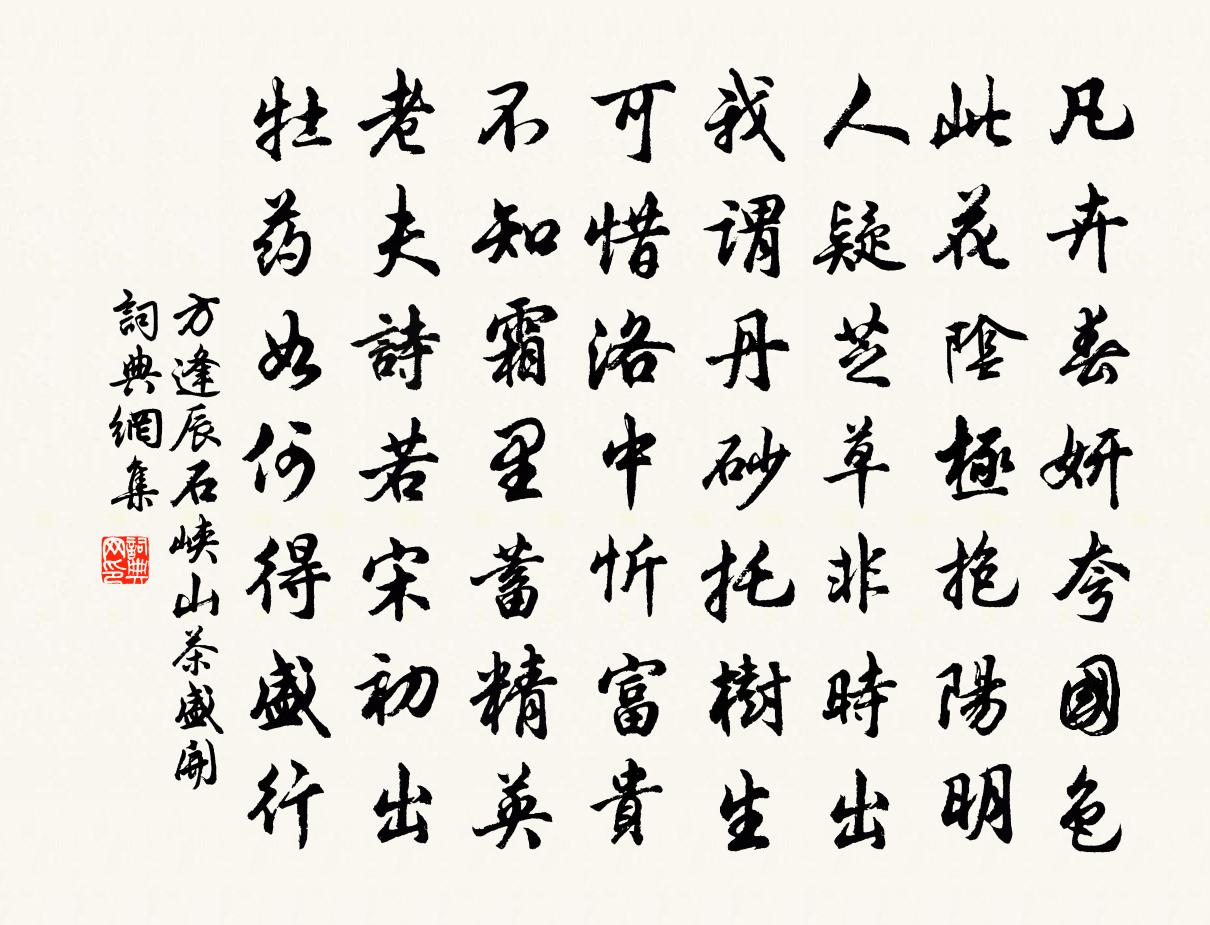 凡卉春妍夸國色
此花陰極抱陽明
人疑芝草非時出
我謂丹砂托樹生
可惜洛中忻富貴
不知霜里蓄精英
老夫詩若宋初出
牡药如何得盛行
方逢辰石峡山茶盛開
詞典網集
詞典網印